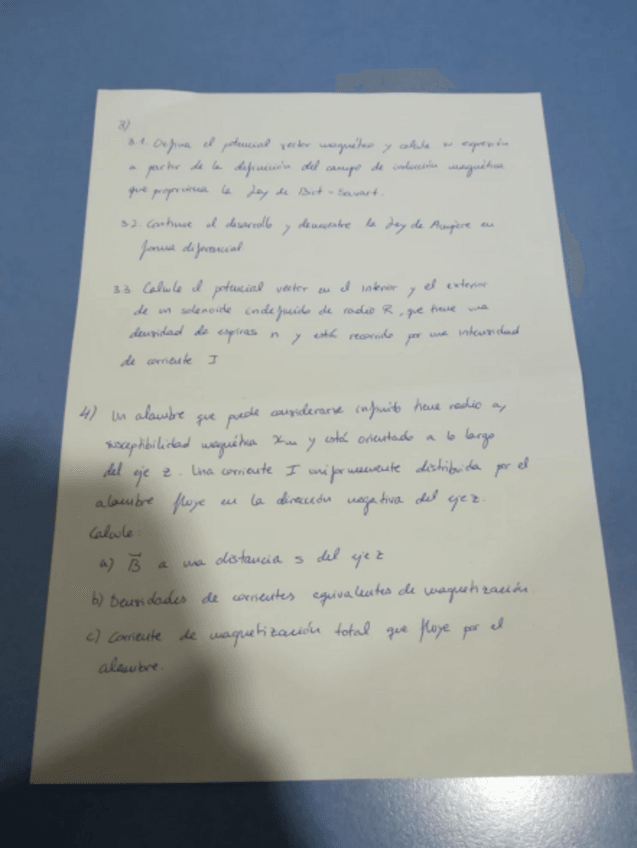 3)
3.1. Defina el potencial vector magnético y calcule su expresión
a partir de la definición del campo de inducción magnética
que proporciona la Ley de Biot-Savart.
3.2. Continue el desarrollo y demuestre la Ley de Ampere en
forma diferencial
3.3 Calcule el potencial vector en el interior y el exterior
de un solenoide indefinido de radio R, que tiene una
densidad de espiras n y está recorrido por una intensidad
de corriente I
4) Un alambre que puede considerarse infinito tiene radio a,
susceptibilidad magnética χm y está orientado a lo largo
del eje z. Una corriente I uniformemente distribuida por el
alambre fluye en la dirección negativa del eje z.
Calcule:
a) B⃗ a una distancia s del eje z
b) Densidades de corrientes equivalentes de magnetización
c) Corriente de magnetización total que fluye por el
alambre.